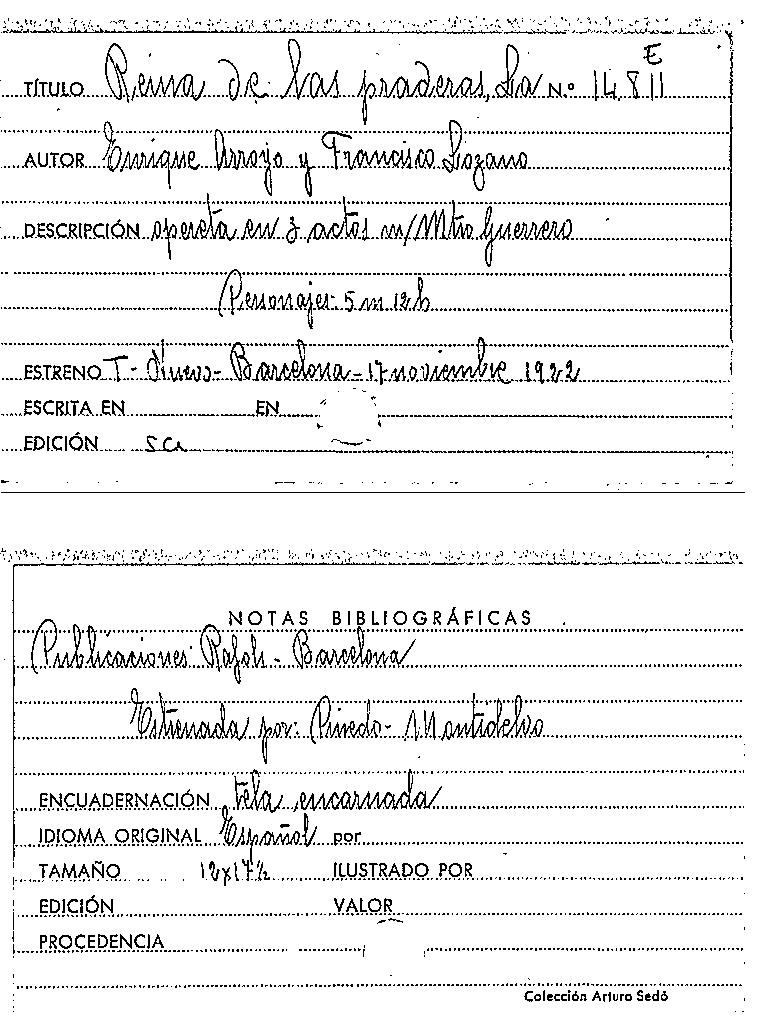 E
TÍTULO Reina de las praderas, La N.º 14.811
AUTOR Enrique Arroyo y Francisco Lozano
DESCRIPCIÓN opereta en 3 actos m/ Mtro Guerrero
Personajes: 5 m 12 h
ESTRENO T- Nuevo- Barcelona- 17 noviembre 1922
ESCRITA EN EN
EDICIÓN
NOTAS BIBLIOGRÁFICAS
Publicaciones Ràfols- Barcelona
Estrenada por: Pinedo-
ENCUADERNACIÓN tela encarnada
IDIOMA ORIGINAL Español por
TAMAÑO 12x17½ ILUSTRADO POR
EDICIÓN VALOR
PROCEDENCIA
Colección Arturo Sedó